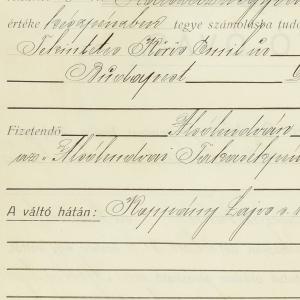 értéke készpénzben tegye számolásba
Tekintetes Kőrös Emil úr
Budapest
Fizetendő Alsólendván
az „Alsólendvai Takarékpénz
A váltó hátán: Kappány Lajos s. k.